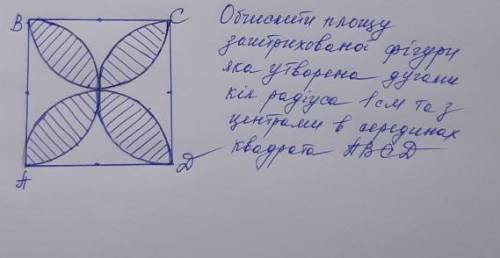 B
C
A
D
Обчислити площу
заштрихованої фігури
яка утворена дугами
кіл радіуса 1 см та з
центрами в серединах
квадрата ABCD